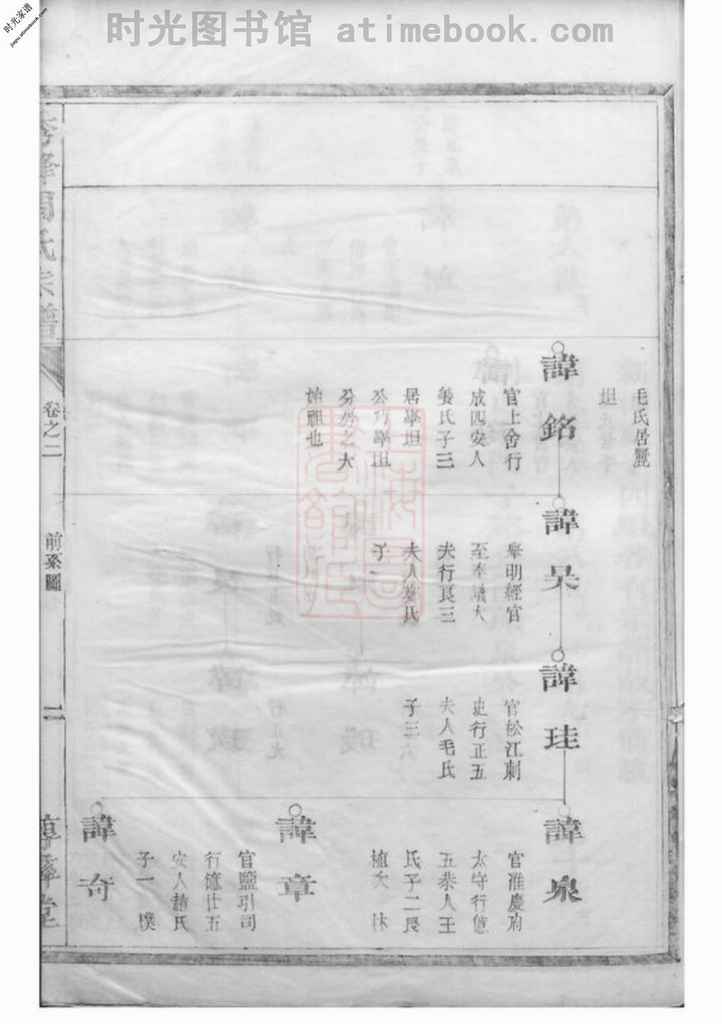 时光图书馆 atimebook.com
时光家谱
jiapu.atimebook.com
毛氏居豐
諱銘
官上舍行
成四安人
姜氏子三
居學坦
始祖也
諱昊
舉明經官
至奉議大
夫行良三
夫人姜氏
諱珪
官松江刺
史行正五
夫人毛氏
子三
諱泉
官淮慶府
太守行億
五恭人王
氏子二長
植次
諱章
諱奇
官鹽引司
行億廿五
安人趙氏
子一 樸
周氏宗譜
卷之二
前系圖
二